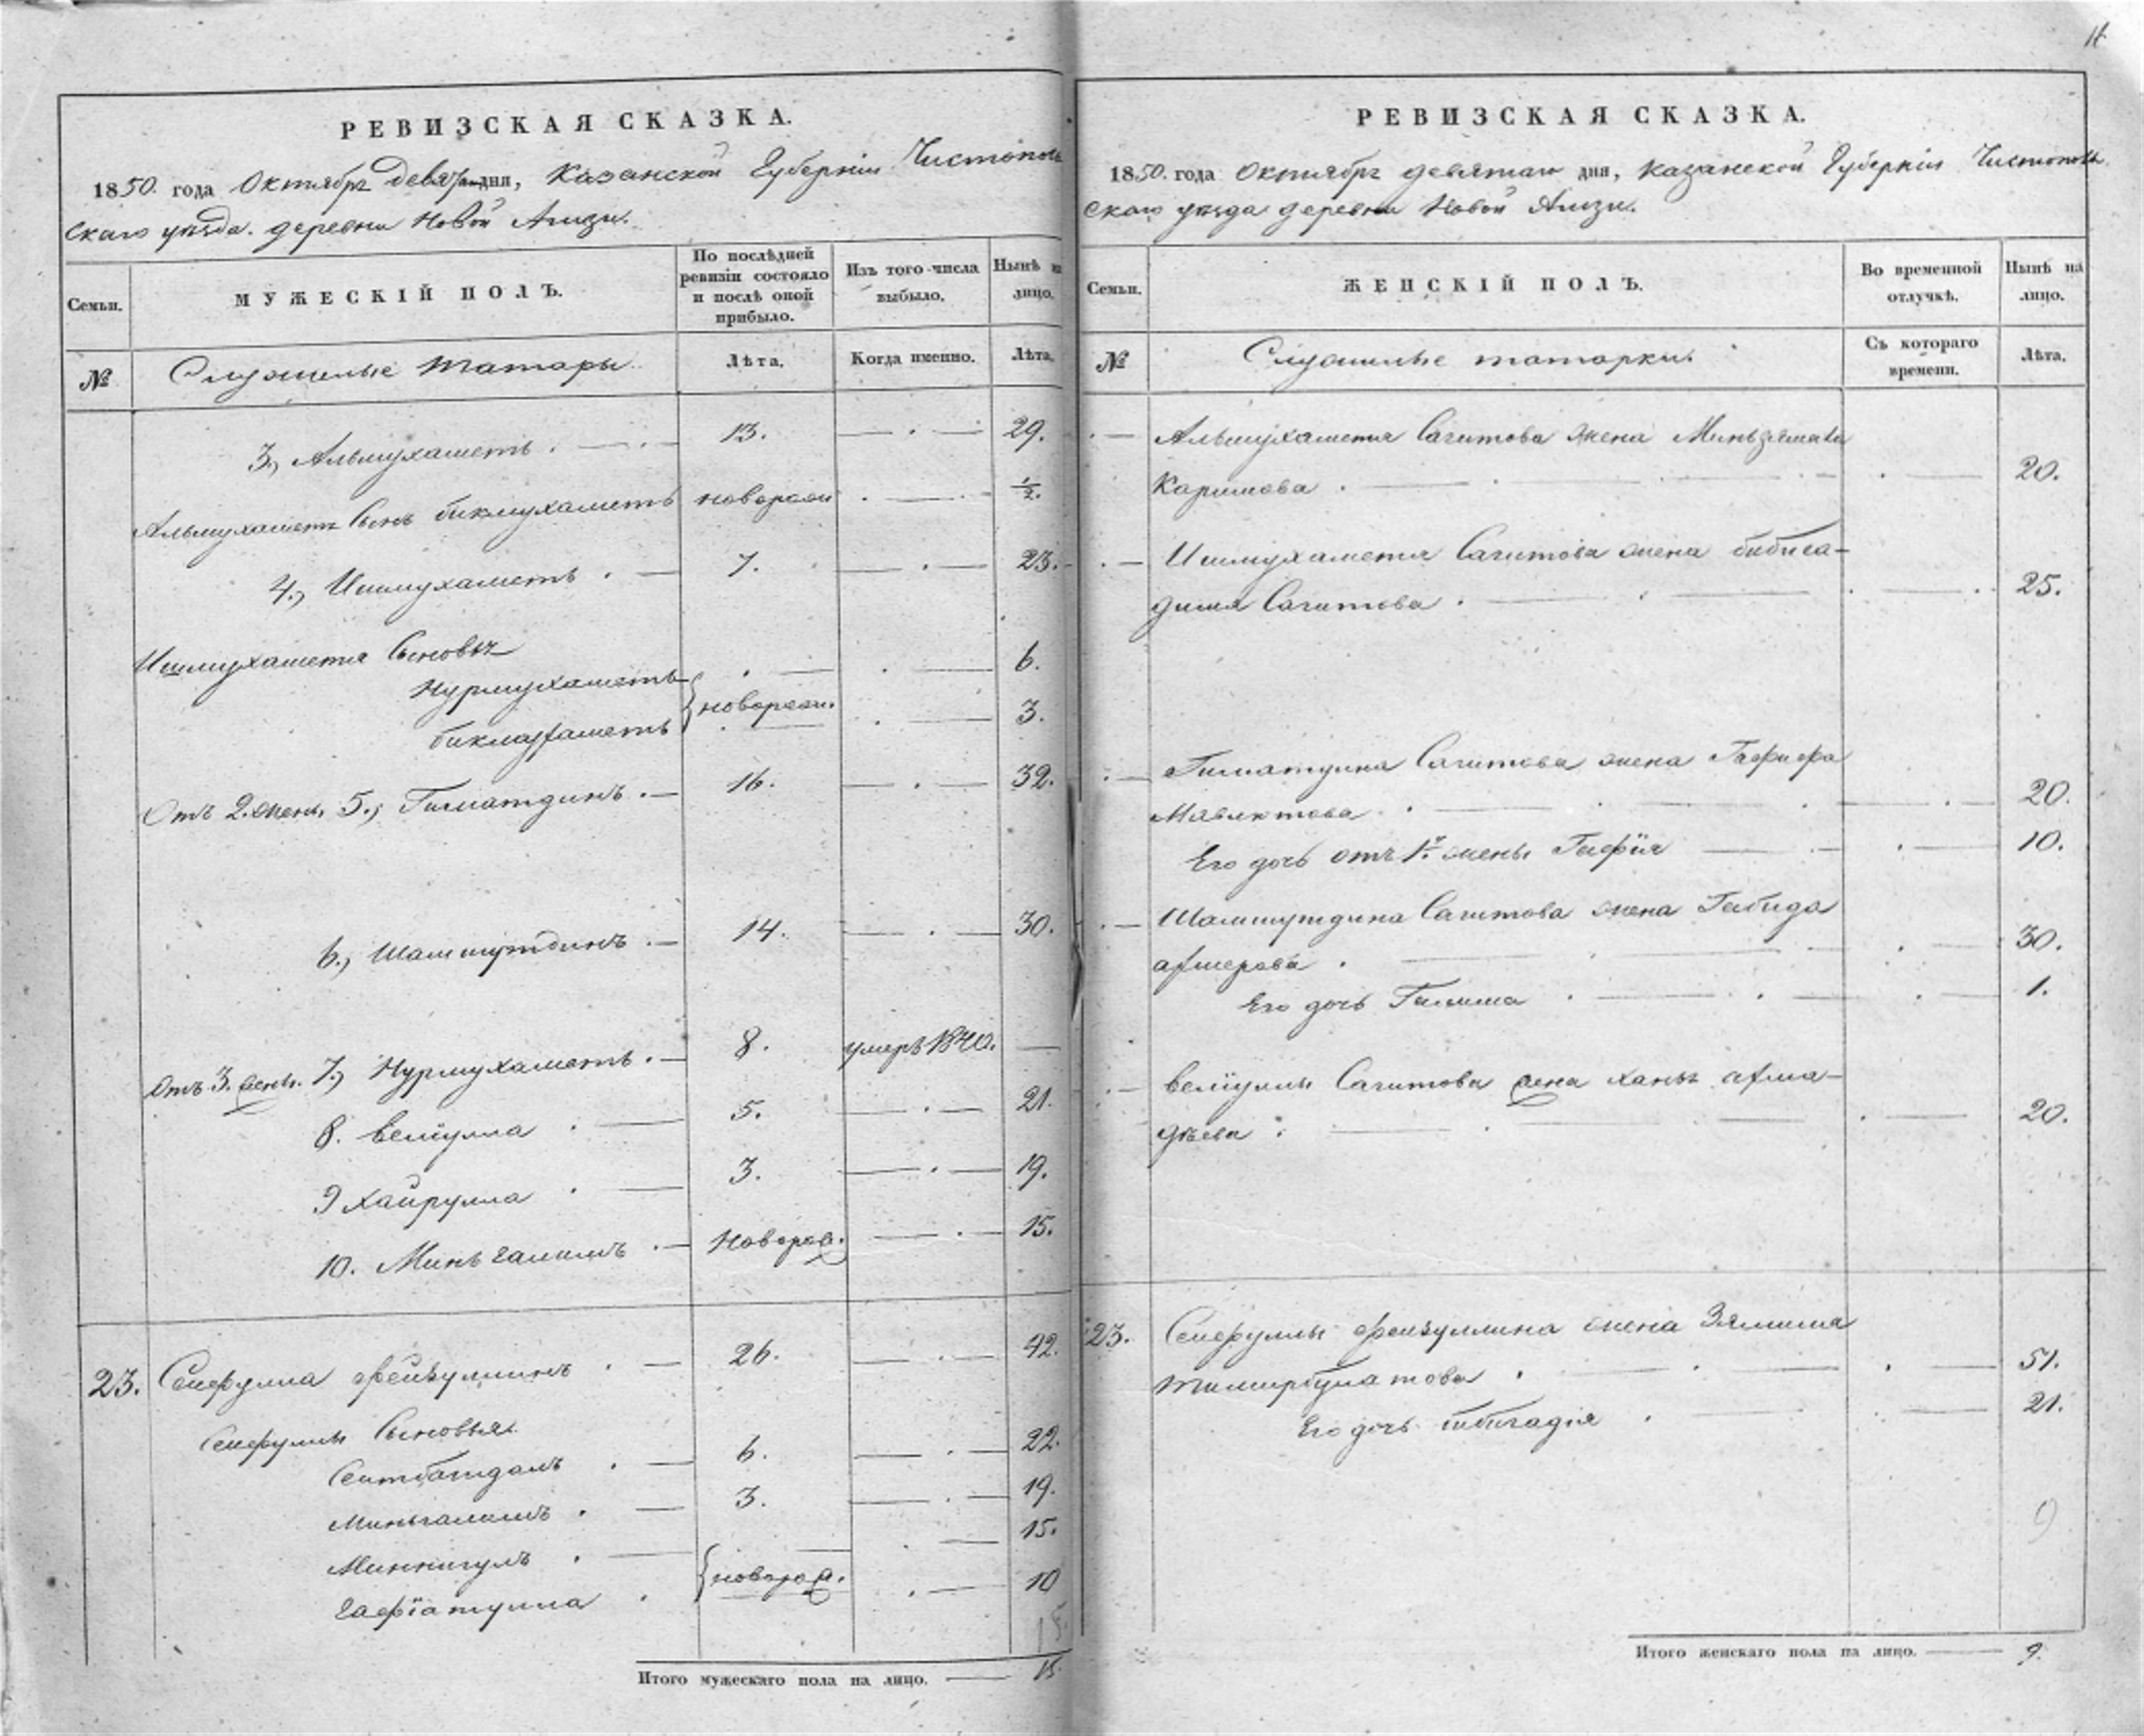 11
РЕВИЗСКАЯ СКАЗКА.
1850. года Октября девятаго дня, Казанской Губерніи Чистополь
скаго уѣзда. деревни Новой Амзи.
Семьи.
МУЖЕСКІЙ ПОЛЪ.
По послѣдней ревизіи состояло и послѣ оной прибыло.
Изъ того числа выбыло.
Нынѣ на лицо.
№
Служилые татары
Лѣта.
Когда именно.
Лѣта.
3., Альмухаметъ. 13. 29.
Альмухаметя Сынъ бикмухаметъ новорож 1/2.
4., Ишмухаметъ. 7. 23.
Ишмухаметя Сыновья
Нурмухаметъ 6.
новорож.
бикмухаметъ 3.
Отъ 2. жены 5., Гиматдинъ. 16. 32.
6., Шамшутдинъ. 14. 30.
Отъ 3. жены. 7., Нурмухаметъ. 8. умеръ 1840.
8. Велиулла 5. 21.
9 Хайрулла 3. 19.
10. Миньгалимъ новорож. 15.
23. Сейфулла Фейзуллинъ 26. 42.
Сейфуллы Сыновья
6. 22.
Миньгалимъ 3. 19.
Миннигулъ 15.
новорож.
Гафіатулла 10
15.
Итого мужескаго пола на лицо. 15.
РЕВИЗСКАЯ СКАЗКА.
1850. года Октября девятаго дня, Казанской Губерніи Чистополь
скаго уѣзда деревни Новой Амзи.
Семьи.
ЖЕНСКІЙ ПОЛЪ.
Во временной отлучкѣ.
Нынѣ на лицо.
№
Служилые татарки.
Съ котораго времени.
Лѣта.
Альмухаметя Сагитова жена
Каримова 20.
Ишмухаметя Сагитова жена бибиса-
Сагитова 25.
Гиматдина Сагитова жена
20.
Его дочь отъ 1й жены Гафія 10.
Шамшутдина Сагитова жена Габида
30.
Его дочь Галима 1.
Велиуллы Сагитова жена
20.
23. Сейфуллы Фейзуллина жена Зялима
Тимирбулатова 51.
Его дочь бибигадія 21.
9
Итого женскаго пола на лицо. 9.